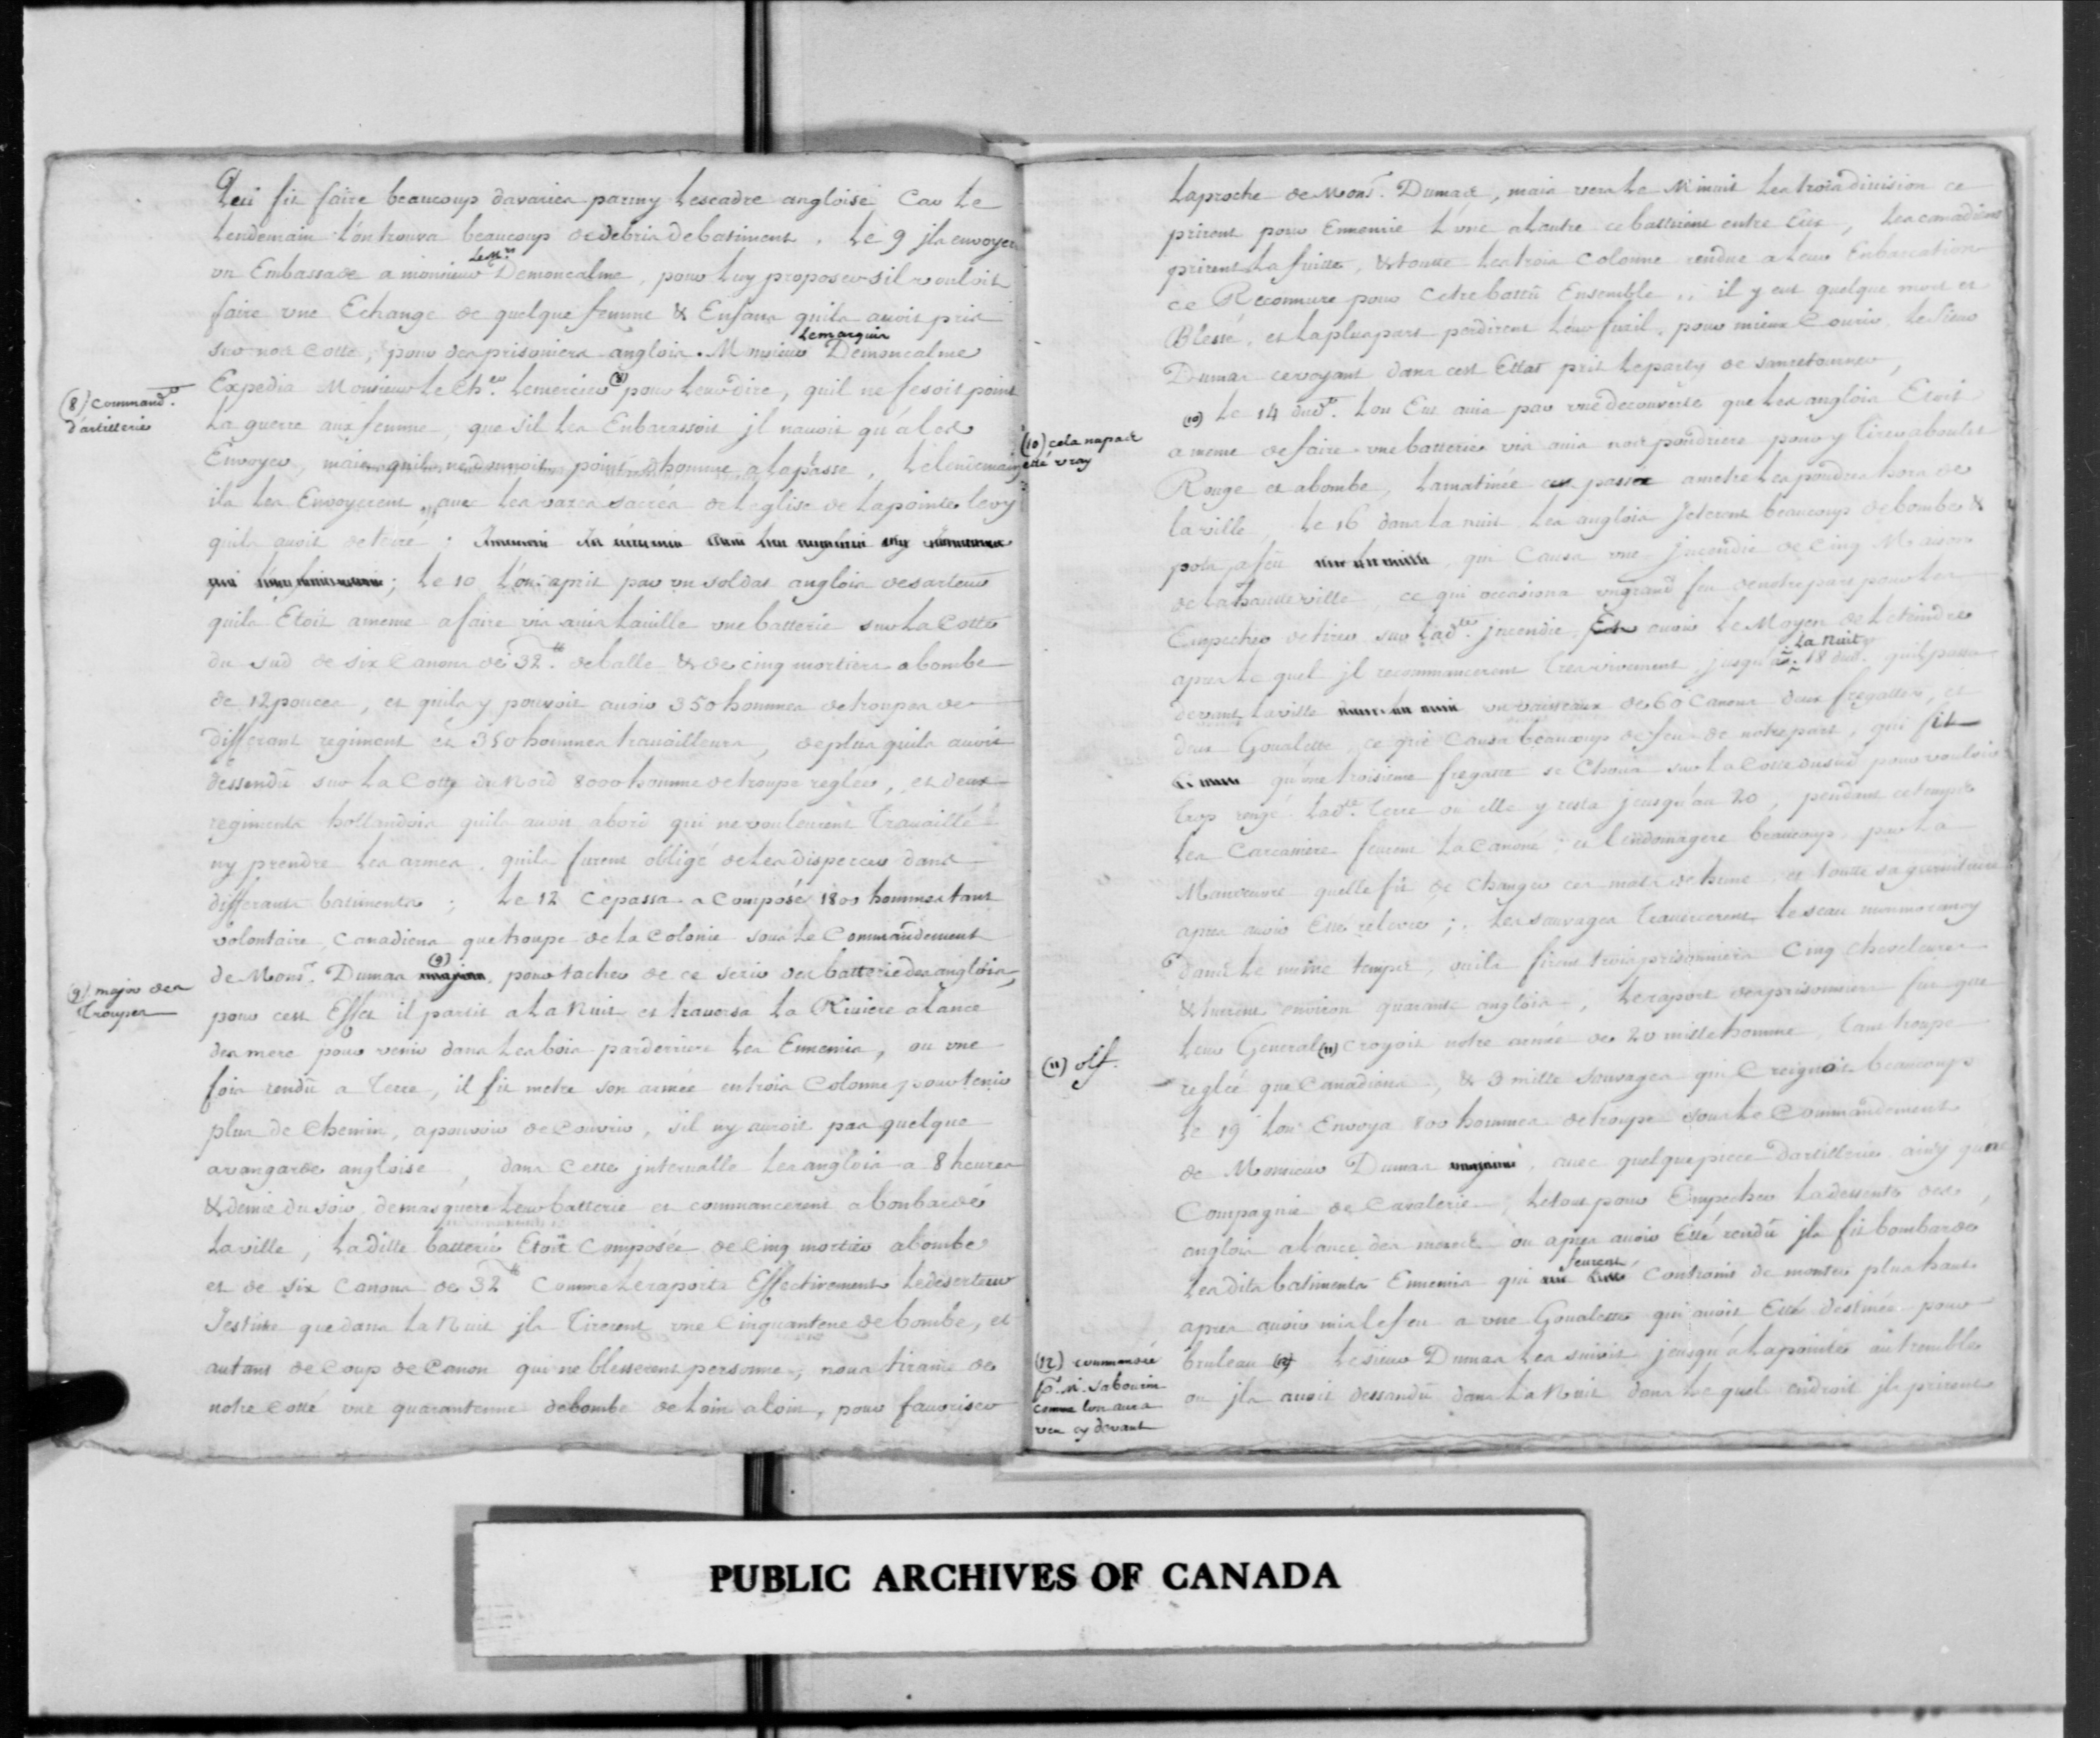 Qui fit faire beaucoup davaries parmy Lescadre angloise Car Le
Lendemain L'on trouva beaucoup de debris de batiment. Le 9 jls envoyer
un Embassade a monsieur Le M.is Demoncalme, pour Luy proposer sil vouloit
faire une Echange de quelque femme & Enfans quils avoit pris
sur nos Cotté, pour des prisoniers anglois. Monsieur Lemarquis Demoncalme
Expedia Monsieur Le Ch.er Lemercier (8) pour Leur dire, quil ne fesoit point
La guerre aux femme, que sil Les Enbarassoit jl navoit qu'á Les
Envoyer, mais quil ne donnoit point dhomme a La place, Le Lendemain
ils Les Envoyerent, avec Les vases sacrés de Leglise de Lapointe Levy
quils avoit deterré;
Le 10 L'on aprit par un soldat anglois deserteur
quils Etoit ameme a faire vis avis Laville une batterie sur La Cotté
du sud de six Canons de 32.tt deballe & de cinq mortiers a bombe
de 12 pouces, et quils y pouvoit avoir 350 hommes de troupes de
differant regiment et 350 hommes travailleurs, de plus quils avoit
dessendü sur La Cotte du Nord 8000 homme de troupe reglée, et deux
regiments hollandois quils avoit abord qui ne vouleurent Travaillé
ny prendre Les armes, quils furent obligé de Les disperser dans
differants batiments; Le 12 Cepassa a Composé 1800 hommes tant
volontaire, Canadiens que troupe de La Colonie sous Le Commandement
de Mons.r Dumas (9) pour tacher de ce serir des batterie des anglois,
pour cest Effet il partit a La Nuit et traversa La Riviere a Lance
des mere pour venir dans Les bois parderriere Les Ennemis, ou une
fois rendü a Terre, il fit metre son armée en trois Colonne pour tenir
plus de Chemin, apouvoir de Couvrir, sil ny auroit pas quelque
avangarde angloise, dans Cette jntervalle Les anglois a 8 heures
& demie du soir, demasquere Leur batterie et commancerent a bonbardé
Laville, Ladille batterie Etoit Composée de Cinq mortier a bombe
et de six Canons de 32.tt Comme Leraporta Effectivement Ledeserteur
Jestime que dans La Nuit jls Tirerent une Cinquantene de bombe, et
autant de Coup de Canon qui ne blesserent personne, nous tirame de
notre Cotté une quarantenne de bombe de Loin a loin, pour favoriser
(8) command.r
d'artillerie
(9) major des
Troupes
Laproche de Mons.r Dumas, mais vers Le Minuit Les trois division ce
prirent pour Ennemie L'une a Lautre ce battirent entre Eux, Les canadiens
prirent La fuitte, & toutte Les trois Colonne rendue a Leur Enbarcation
ce Reconnure pour Cetre battü Ensemble, il y eut quelque mort et
Blessé, et La plus part perdirent Leur fusil, pour mieux Courir, Le sieur
Dumas cevoyant dans cest Ettat prit Le party de sanretourner,
(10) Le 14 dud.t Lon Eut avis par une decouverte que Les anglois Etoit
a meme de faire une batterie vis avis nos poudriere pour y Tirer a boulet
Rouge et a bombe, La matinée passée a metre Les poudres hors de
La ville, Le 16 dans La nuit Les anglois Jeterent beaucoup de bombe &
pots a feü, qui Causa une jncendie de Cinq Maison
de La hautte ville, ce qui occasiona un grand feu de notre part pour Les
Empecher de tirer sur Lad.te jncendie avoir Le Moyen de L'eteindre
apres Le quel jl recommancerent Tres vivement jusqu'a La nuit 18 dud. quil passa
devant La ville un vaisseaux de 60 Canons deux fregattes, et
deux Goualette, ce qui Causa beaucoup de feu de notre part, qui fit
qu'une troisieme fregatte se Choua sur La Cotté du sud pour vouloir
trop rengé Lad.te Terre ou elle y resta jeusqu'au 20, pendant ce temps
Les Carcassiere feurent La Canoné, et L'endomagere beaucoup, par La
Manoeuvre quelle fit de Changer ces mats de hune et toutte sa garniture
apres avoir Etté relevée; Les sauvages Traverserent Leseau monmorancy
dans Le meme temps, ou ils firent trois prisonniers Cinq cheveleures
& tuerent environ quarante anglois, Le raport des prisonniers fut que
Leur General (11) Croyoit notre armée de 20 mille homme, tant troupe
reglée que Canadiens, & 3 mille Sauvages qui Creignoit beaucoup
Le 19 Lon Envoya 800 hommes de troupe sous Le Commandement
de Monsieur Dumas, avec quelque piece dartillerie ainsy qune
Compagnie de Cavalerie, Letout pour Empecher La dessente des
anglois a L'ance des mere ou apres avoir Etté rendü jls fit bombardé
Les dits batiments Ennemis qui feurent Contraint de monter plus haut
apres avoir mis Le feu a une Goualette qui avoit Etté destinée pour
bruleau (12) Le sieur Dumas Les suivit jeusqu'á La pointe autremble
ou jls avoit dessandü dans La Nuit dans Le quel endroit jls prirent
(10) cela na pas
eté vray
(11) olf.
(12) commandé
p.r M. Sabourin
comme lon aura
veu cy devant
PUBLIC ARCHIVES OF CANADA